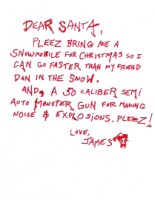 DEAR SANTA,
PLEEZ BRING ME A
SNOWMOBILE FOR CHRISTMAS SO I
CAN GO FASTER THAN MY FRIEND
DAN IN THE SNOW.
AND, A 50 CALIBER SEMI
AUTO MONSTER GUN FOR MAKING
NOISE & EXPLOSIONS. PLEEZ!
LOVE,
JAMES